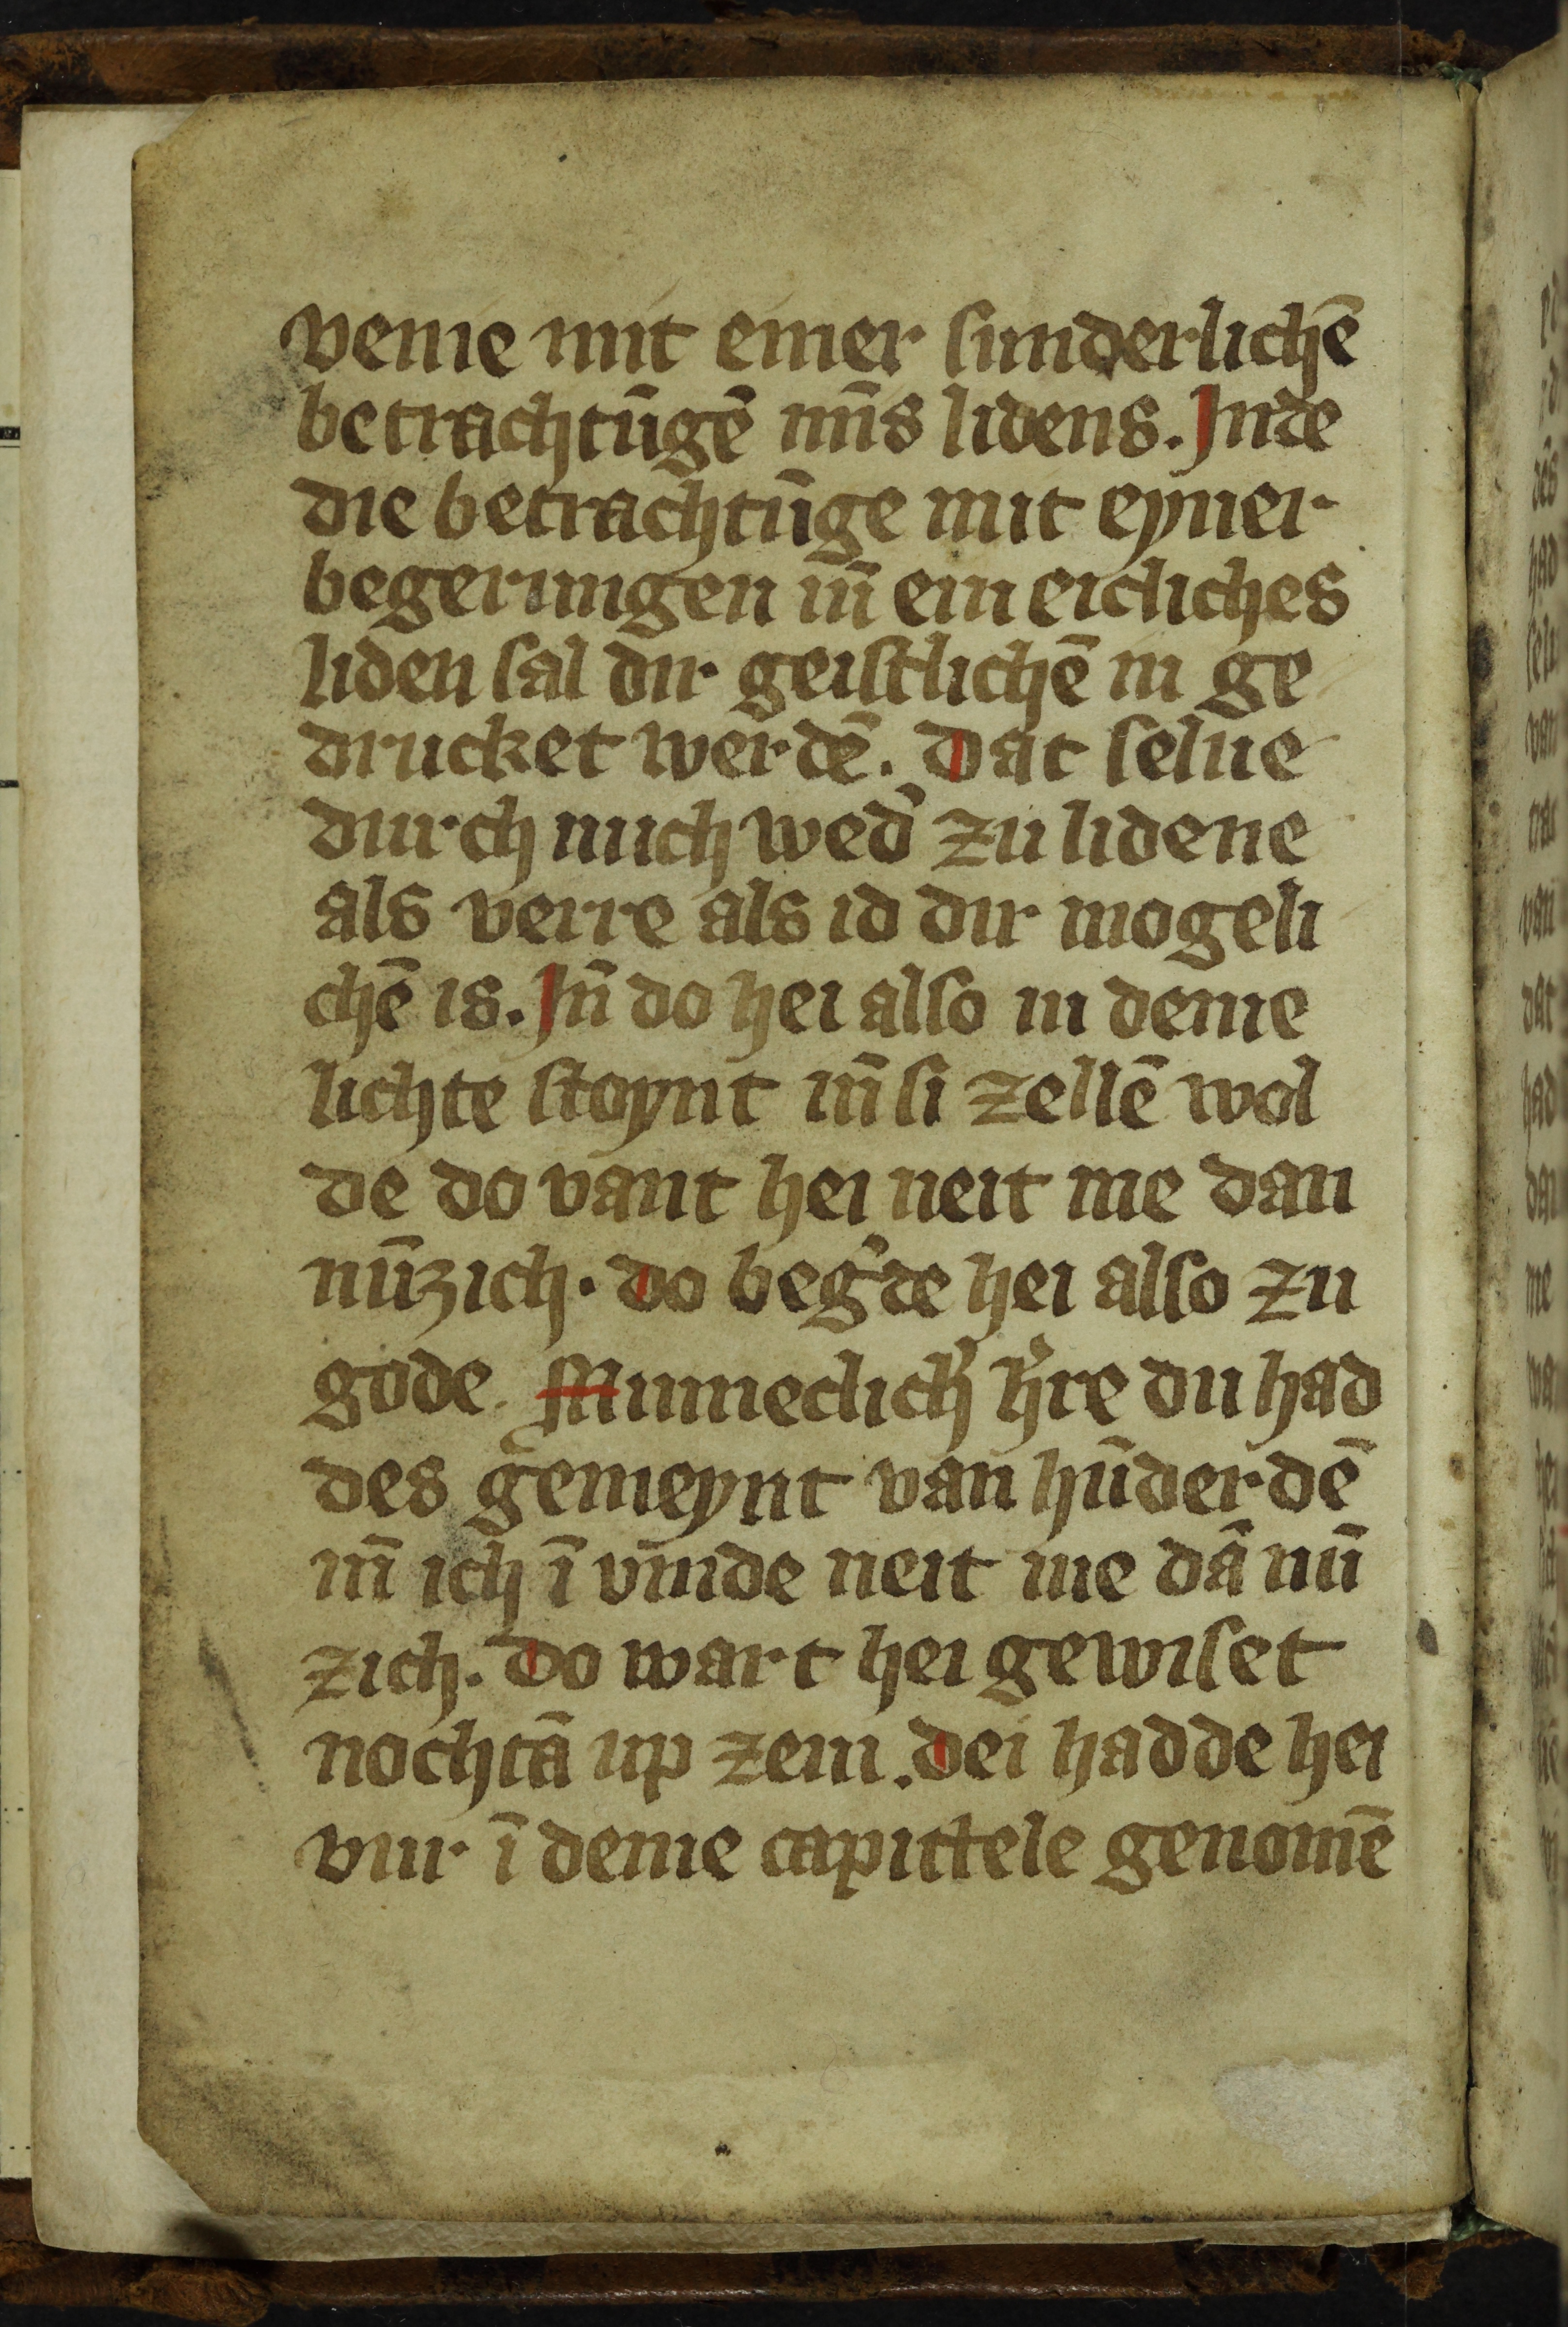 venie mit einer sunderlichē
betrachtūgē mīs lidens. Inde
die betrachtūge mit eyner
begerungen iñ ein eicliches
liden sal dir geistlichē in ge
drucket werdē. Dat selue
durch mich wed' zu lidene
als verre als id dir mogeli
chē is. Iñ do hei also in deme
lichte stoynt iñ si zellē wol
de do vant hei neit me dan
nūzich. do beg'de hei also zu
gode. Minneclich' h're du had
des gemeynt van hūderdē
iñ ich ī vinde neit me dā nū
zich. Do wart hei gewiset
nochtā up zein. dei hadde hei
vur ī deme capittele genomē